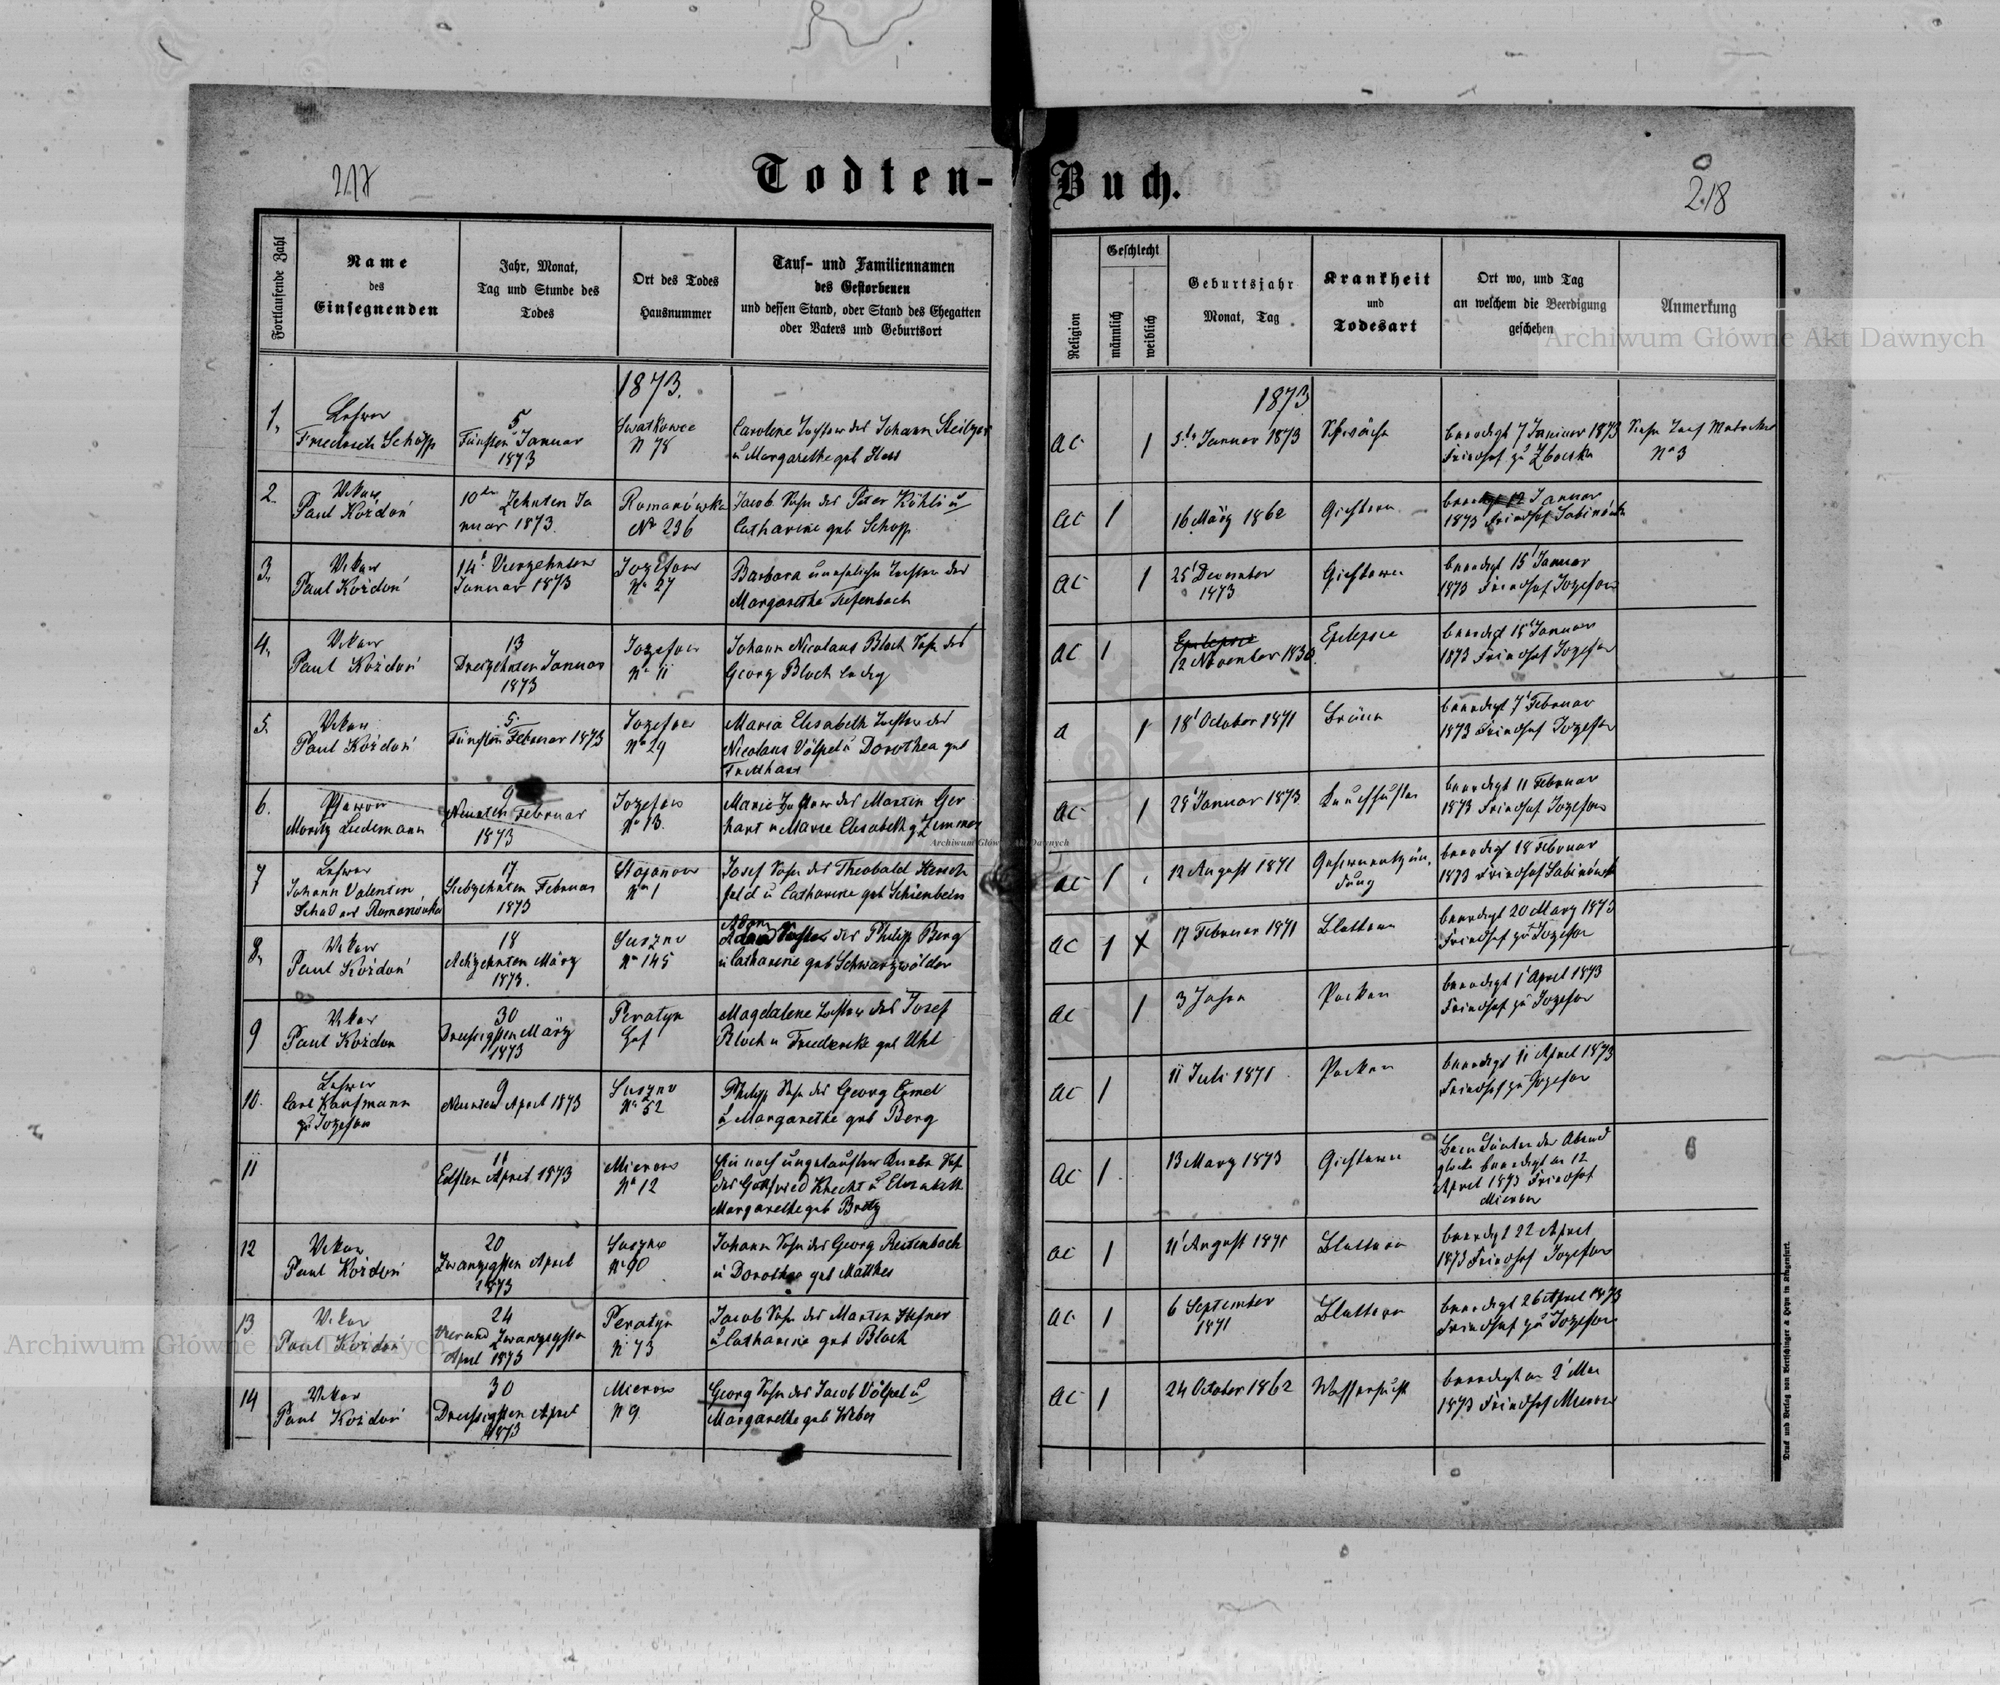 217
Todten-Buch.
218
Fortlaufende Zahl
Name
des
Einsegnenden
Jahr, Monat,
Tag und Stunde des
Todes
Ort des Todes
Hausnummer
Tauf- und Familiennamen
des Gestorbenen
und dessen Stand, oder Stand des Ehegatten
oder Vaters und Geburtsort
Religion
Geschlecht
männlich
weiblich
Geburtsjahr
Monat, Tag
Krankheit
und
Todesart
Ort wo, und Tag
an welchem die Beerdigung
geschehen
Anmerkung
1873.
1873
1,
Lehrer
Friedrich Schöpp
5
Fünften Januar
1873
Swatkowce
N 78
Caroline Tochter des Johann
u Margarethe geb
AC
1
5ten Januar 1873
Schwäche
beerdigt 7 Januar 1873
Friedhof zu Zboiska
Siehe Tauf Matrikel
No 3
2.
Vikar
Paul Kożdoń
10ten Zehnten Ja
nuar 1873.
Romanówka
No 236
Jacob Sohn des Peter Köhli u
Catharine geb Schopp
AC
1
16 März 1862
Gichtern
Januar
1873 Friedhof Sabinówka
3,
Vikar
Paul Kożdoń
14t Vierzehnten
Januar 1873
Jozefow
No 27
Barbara uneheliche Tochter der
Margarethe Tiefenbach
AC
1
25t December
1873
Gichtern
beerdigt 15t Januar
1873 Friedhof Jozefow
4,
Vikar
Paul Kożdoń
13
Dreizehnten Januar
1873
Jozefow
No 11
Johann Nicolaus Bloch Sohn des
Georg Bloch ledig
AC
1
Epilepsie
12 November
Epilepsie
beerdigt 15t Januar
1873 Friedhof Jozefow
5,
Vikar
Paul Kożdoń
5.
Fünften Februar 1873
Jozefow
No 29
Maria Elisabeth Tochter des
Nicolaus Völpel u Dorothea geb
A
1
18t October 1871
Bräune
beerdigt 7t Februar
1873 Friedhof Jozefow
6.
Pfarrer
Moritz Liedemann
9
Neunten Februar
1873
Jozefow
No 13.
Marie Tochter des Martin Ger
hart u Marie Elisabeth g Zimmer
AC
1
28t Januar 1873
beerdigt 11 Februar
1873 Friedhof Jozefow
7
Lehrer
Johann Valentin
Schad aus Romanówka
17
Siebzehnten Februar
1873
Stojanow
No 1
Josef Sohn des Theobald Hersch
feld u Catharine geb Schienbein
AC
1
12 August 1871
Gehirnentzün,
dung
beerdigt 18 Februar
1873 Friedhof Sabinówka
8,
Vikar
Paul Kożdoń
18
Achzehnten März
1873.
Suszno
No 145
Adam
des Philipp Berg
u Catharine geb Schwarzwälder
AC
1
X
17 Februar 1871
Blattern
beerdigt 20 März 1873
Friedhof zu Jozefow
9
Vikar
Paul Kożdon
30
Dreissigsten März
1873
Peratyn
Hof
Magdalene Tochter des Josef
Bloch u Friedericke geb Uhl
AC
1
3 Jahre
Pocken
beerdigt 1t April 1873
Friedhof zu Jozefow
10.
Lehrer
Carl Kaufmann
zu Jozefow
9
Neunten April 1873
Suszno
No 52
Philipp Sohn des Georg Ermel
u Margarethe geb Berg
AC
1
11 Juli 1871
Pocken
beerdigt 11 April 1873
Friedhof zu Jozefow
11
11
Eilften April 1873
Mierow
No 12
Ein noch ungetaufter Knabe Sohn
des Gottfried Knecht u Elisabeth
Margarethe geb Bretz
AC
1
13 März 1873
Gichtern
Beim Läuten der Abend
glocke beerdigt am 12
April 1873 Friedhof
Mierow
12
Vikar
Paul Kożdoń
20
Zwanzigsten April
1873
Suszno
No 90
Johann Sohn des Georg Reitenbach
u Dorothea geb Matthes
AC
1
11t August 1871
Blattern
beerdigt 22 April
1873 Friedhof Jozefow
13
Vikar
Paul Kożdoń
24
Vier und Zwanzigsten
April 1873
Peratyn
N 73
Jacob Sohn des Martin Hefner
u Catharine geb Bloch
AC
1
6 September
1871
Blattern
beerdigt 26 April 1873
Friedhof zu Jozefow
14
Vikar
Paul Kożdoń
30
Dreissigsten April
1873
Mierow
N 9
Georg Sohn des Jacob Völpel u
Margarethe geb Weber
AC
1
24 October 1862
Wassersucht
beerdigt am 2t Mai
1873 Friedhof Mierow
Druck und Verlag von Bertschinger & Heyn in Klagenfurt.
Archiwum Główne Akt Dawnych
Archiwum Główne Akt Dawnych
Archiwum Główne Akt Dawnych